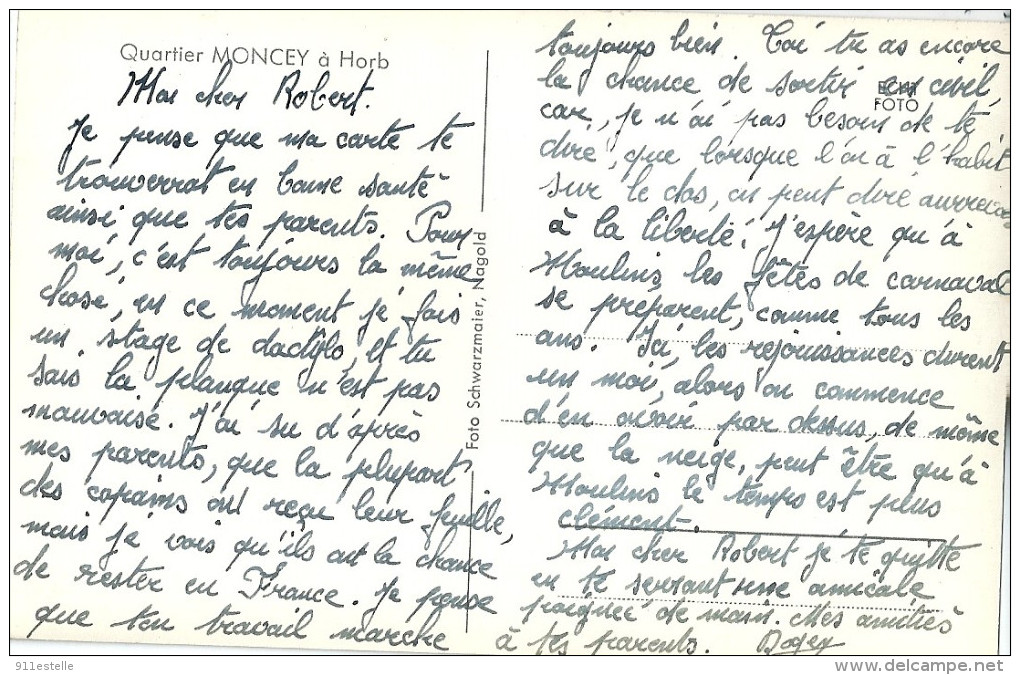 Quartier MONCEY à Horb
Mon cher Robert.
Je pense que ma carte te
trouverrat en bonne santé
ainsi, que tes parents. Pour
moi, c'est toujours la même
chose, en ce moment je fais
un stage de dactylo, et tu
sais la planque n'est pas
mauvaise. J'ai su d'après
mes parents, que la plupart
des copains ont reçu leur feuille,
mais je vois qu'ils ont la chance
de rester en France. Je pense
que ton travail marche
Foto Schwarzmaier, Nagold
toujours bien. Toi tu as encore
la chance de sortir en civil,
ECHT
FOTO
car, je n'ai pas besoin de te
dire, que lorsque l'on à l'habit
sur le dos, on peut dire aurevoir
à la liberté! J'espère qu'à
Moulins, les fêtes de carnaval
se preparent, comme tous les
ans. Ici, les rejouissances durent
un moi, alors on commence
d'en avoir par dessus, de même
que la neige, peut être qu'à
Moulins le temps est plus
clément.
Mon cher Robert je te quitte
en te serrant une amicale
poignée de main. Mes amitiés
à tes parents. Roger
911estelle
delcampe.net